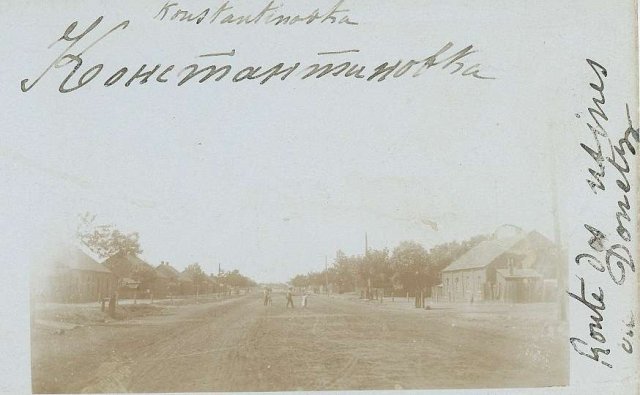 Konstantinovka
Константиновка
Route des usines
au Donetz